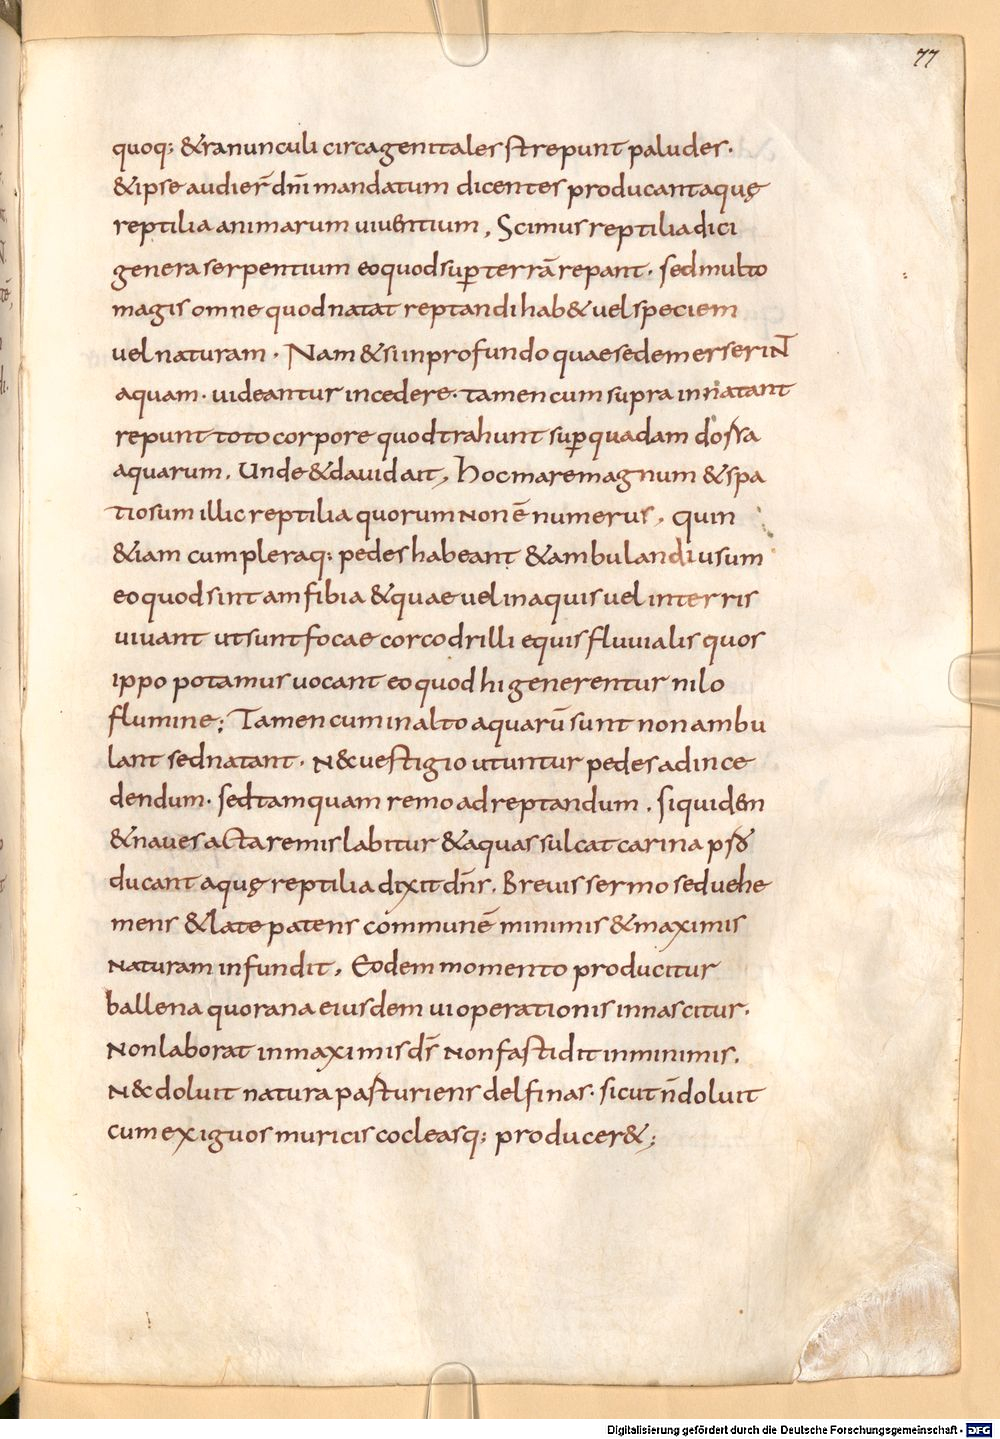 77
quoq; & ranunculi circa genitales strepunt paludes.
& ipse audier̄ dn̄i mandatum dicentes producant aquę
reptilia animarum uiuentium, Scimus reptilia dici
genera serpentium eo quod sup̱ terrā repant. sed multo
magis omne quod natat reptandi hab& uel speciem
uel naturam. Nam & si in profundo quae sedem erserint
aquam. uideantur incedere. tamen cum supra innatant
repunt toto corpore quod trahunt sup̱ quadam dossa
aquarum. Unde & dauid ait, hoc mare magnum & spa
tiosum illic reptilia quorum non ē numerus, quin
&iam cum pleraq; pedes habeant & ambulandi usum
eo quod sint amfibia & quae uel in aquis uel in terris
uiuant ut sunt focae corcodrilli equis fluuialis quos
ippo potamus uocant eo quod hi generentur nilo
flumine; Tamen cum in alto aquarū sunt non ambu
lant sed natant. N& uestigio utuntur pedes ad ince
dendum. sed tamquam remo ad reptandum, siquidem
& naues acta remis labitur & aquas sulcat carina
ducant aquę reptilia dixit dn̄s. Breuis sermo sed uehe
mens & late patens communē minimis & maximis
naturam infundit, Eodem momento producitur
ballena quo rana eiusdem ui operationis innascitur.
Non laborat in maximis ds̄ non fastidit in minimis.
N& doluit natura pasturiens delfinas. sicut n̄ doluit
cum exiguos muricis cocleasq; producer&;
Digitalisierung gefördert durch die Deutsche Forschungsgemeinschaft - DFG